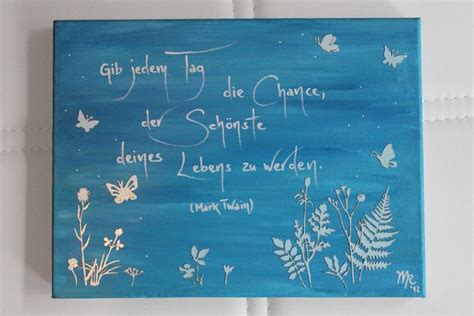 Gib jedem Tag
die Chance,
der Schönste
deines Lebens zu werden.
(Mark Twain)
MR
'12